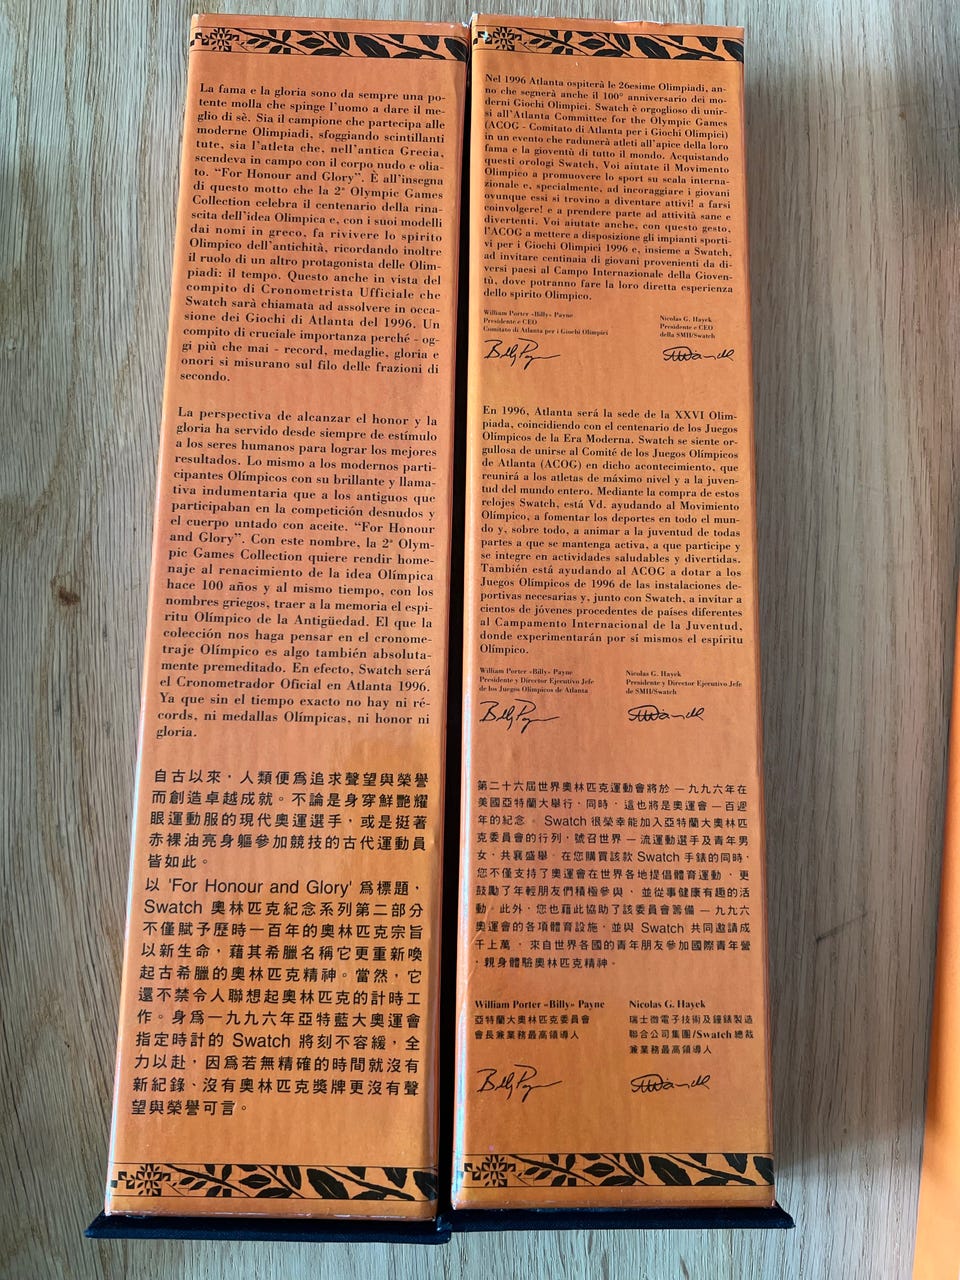 La fama e la gloria sono da sempre una po-
tente molla che spinge l'uomo a dare il me-
glio di sè. Sia il campione che partecipa alle
moderne Olimpiadi, sfoggiando scintillanti
tute, sia l'atleta che, nell'antica Grecia,
scendeva in campo con il corpo nudo e olia-
to. “For Honour and Glory”. È all'insegna
di questo motto che la 2ª Olympic Games
Collection celebra il centenario della rina-
scita dell'idea Olimpica e, con i suoi modelli
dai nomi in greco, fa rivivere lo spirito
Olimpico dell'antichità, ricordando inoltre
il ruolo di un altro protagonista delle Olim-
piadi: il tempo. Questo anche in vista del
compito di Cronometrista Ufficiale che
Swatch sarà chiamata ad assolvere in occa-
sione dei Giochi di Atlanta del 1996. Un
compito di cruciale importanza perché - og-
gi più che mai - record, medaglie, gloria e
onori si misurano sul filo delle frazioni di
secondo.
La perspectiva de alcanzar el honor y la
gloria ha servido desde siempre de estímulo
a los seres humanos para lograr los mejores
resultados. Lo mismo a los modernos parti-
cipantes Olímpicos con su brillante y llama-
tiva indumentaria que a los antiguos que
participaban en la competición desnudos y
el cuerpo untado con aceite. “For Honour
and Glory”. Con este nombre, la 2ª Olym-
pic Games Collection quiere rendir home-
naje al renacimiento de la idea Olímpica
hace 100 años y al mismo tiempo, con los
nombres griegos, traer a la memoria el espí-
ritu Olímpico de la Antigüedad. El que la
colección nos haga pensar en el cronome-
traje Olímpico es algo también absoluta-
mente premeditado. En efecto, Swatch será
el Cronometrador Oficial en Atlanta 1996.
Ya que sin el tiempo exacto no hay ni ré-
cords, ni medallas Olímpicas, ni honor ni
gloria.
自古以來，人類便爲追求聲望與榮譽
而創造卓越成就。不論是身穿鮮艷耀
眼運動服的現代奧運選手，或是挺著
赤裸油亮身軀參加競技的古代運動員
皆如此。
以 'For Honour and Glory' 爲標題，
Swatch 奧林匹克紀念系列第二部分
不僅賦予歷時一百年的奧林匹克宗旨
以新生命，藉其希臘名稱它更重新喚
起古希臘的奧林匹克精神。當然，它
還不禁令人聯想起奧林匹克的計時工
作。身爲一九九六年亞特藍大奧運會
指定時計的 Swatch 將刻不容緩，全
力以赴，因爲若無精確的時間就沒有
新紀錄、沒有奧林匹克獎牌更沒有聲
望與榮譽可言。
Nel 1996 Atlanta ospiterà le 26esime Olimpiadi, an-
no che segnerà anche il 100° anniversario dei mo-
derni Giochi Olimpici. Swatch è orgoglioso di unir-
si all'Atlanta Committee for the Olympic Games
(ACOG - Comitato di Atlanta per i Giochi Olimpici)
in un evento che radunerà atleti all'apice della loro
fama e la gioventù di tutto il mondo. Acquistando
questi orologi Swatch, Voi aiutate il Movimento
Olimpico a promuovere lo sport su scala interna-
zionale e, specialmente, ad incoraggiare i giovani
ovunque essi si trovino a diventare attivi! a farsi
coinvolgere! e a prendere parte ad attività sane e
divertenti. Voi aiutate anche, con questo gesto,
l'ACOG a mettere a disposizione gli impianti sporti-
vi per i Giochi Olimpici 1996 e, insieme a Swatch,
ad invitare centinaia di giovani provenienti da di-
versi paesi al Campo Internazionale della Gioven-
tù, dove potranno fare la loro diretta esperienza
dello spirito Olimpico.
William Porter «Billy» Payne
Presidente e CEO
Comitato di Atlanta per i Giochi Olimpici
Nicolas G. Hayek
Presidente e CEO
della SMH/Swatch
Billy Payne
En 1996, Atlanta será la sede de la XXVI Olim-
piada, coincidiendo con el centenario de los Juegos
Olímpicos de la Era Moderna. Swatch se siente or-
gullosa de unirse al Comité de los Juegos Olímpicos
de Atlanta (ACOG) en dicho acontecimiento, que
reunirá a los atletas de máximo nivel y a la juven-
tud del mundo entero. Mediante la compra de estos
relojes Swatch, está Vd. ayudando al Movimiento
Olímpico, a fomentar los deportes en todo el mun-
do y, sobre todo, a animar a la juventud de todas
partes a que se mantenga activa, a que participe y
se integre en actividades saludables y divertidas.
También está ayudando al ACOG a dotar a los
Juegos Olímpicos de 1996 de las instalaciones de-
portivas necesarias y, junto con Swatch, a invitar a
cientos de jóvenes procedentes de países diferentes
al Campamento Internacional de la Juventud,
donde experimentarán por sí mismos el espíritu
Olímpico.
William Porter «Billy» Payne
Presidente y Director Ejecutivo Jefe
de los Juegos Olímpicos de Atlanta
Nicolas G. Hayek
Presidente y Director Ejecutivo Jefe
de SMH/Swatch
Billy Payne
第二十六屆世界奧林匹克運動會將於一九九六年在
美國亞特蘭大舉行，同時，這也將是奧運會一百週
年的紀念。Swatch 很榮幸能加入亞特蘭大奧林匹
克委員會的行列，號召世界一流運動選手及青年男
女，共襄盛舉。在您購買該款 Swatch 手錶的同時，
您不僅支持了奧運會在世界各地提倡體育運動，更
鼓勵了年輕朋友們積極參與，並從事健康有趣的活
動。此外，您也藉此協助了該委員會籌備一九九六
奧運會的各項體育設施，並與 Swatch 共同邀請成
千上萬，來自世界各國的青年朋友參加國際青年營
，親身體驗奧林匹克精神。
William Porter «Billy» Payne
亞特蘭大奧林匹克委員會
會長兼業務最高領導人
Nicolas G. Hayek
瑞士微電子技術及鐘錶製造
聯合公司集團/Swatch 總裁
兼業務最高領導人
Billy Payne